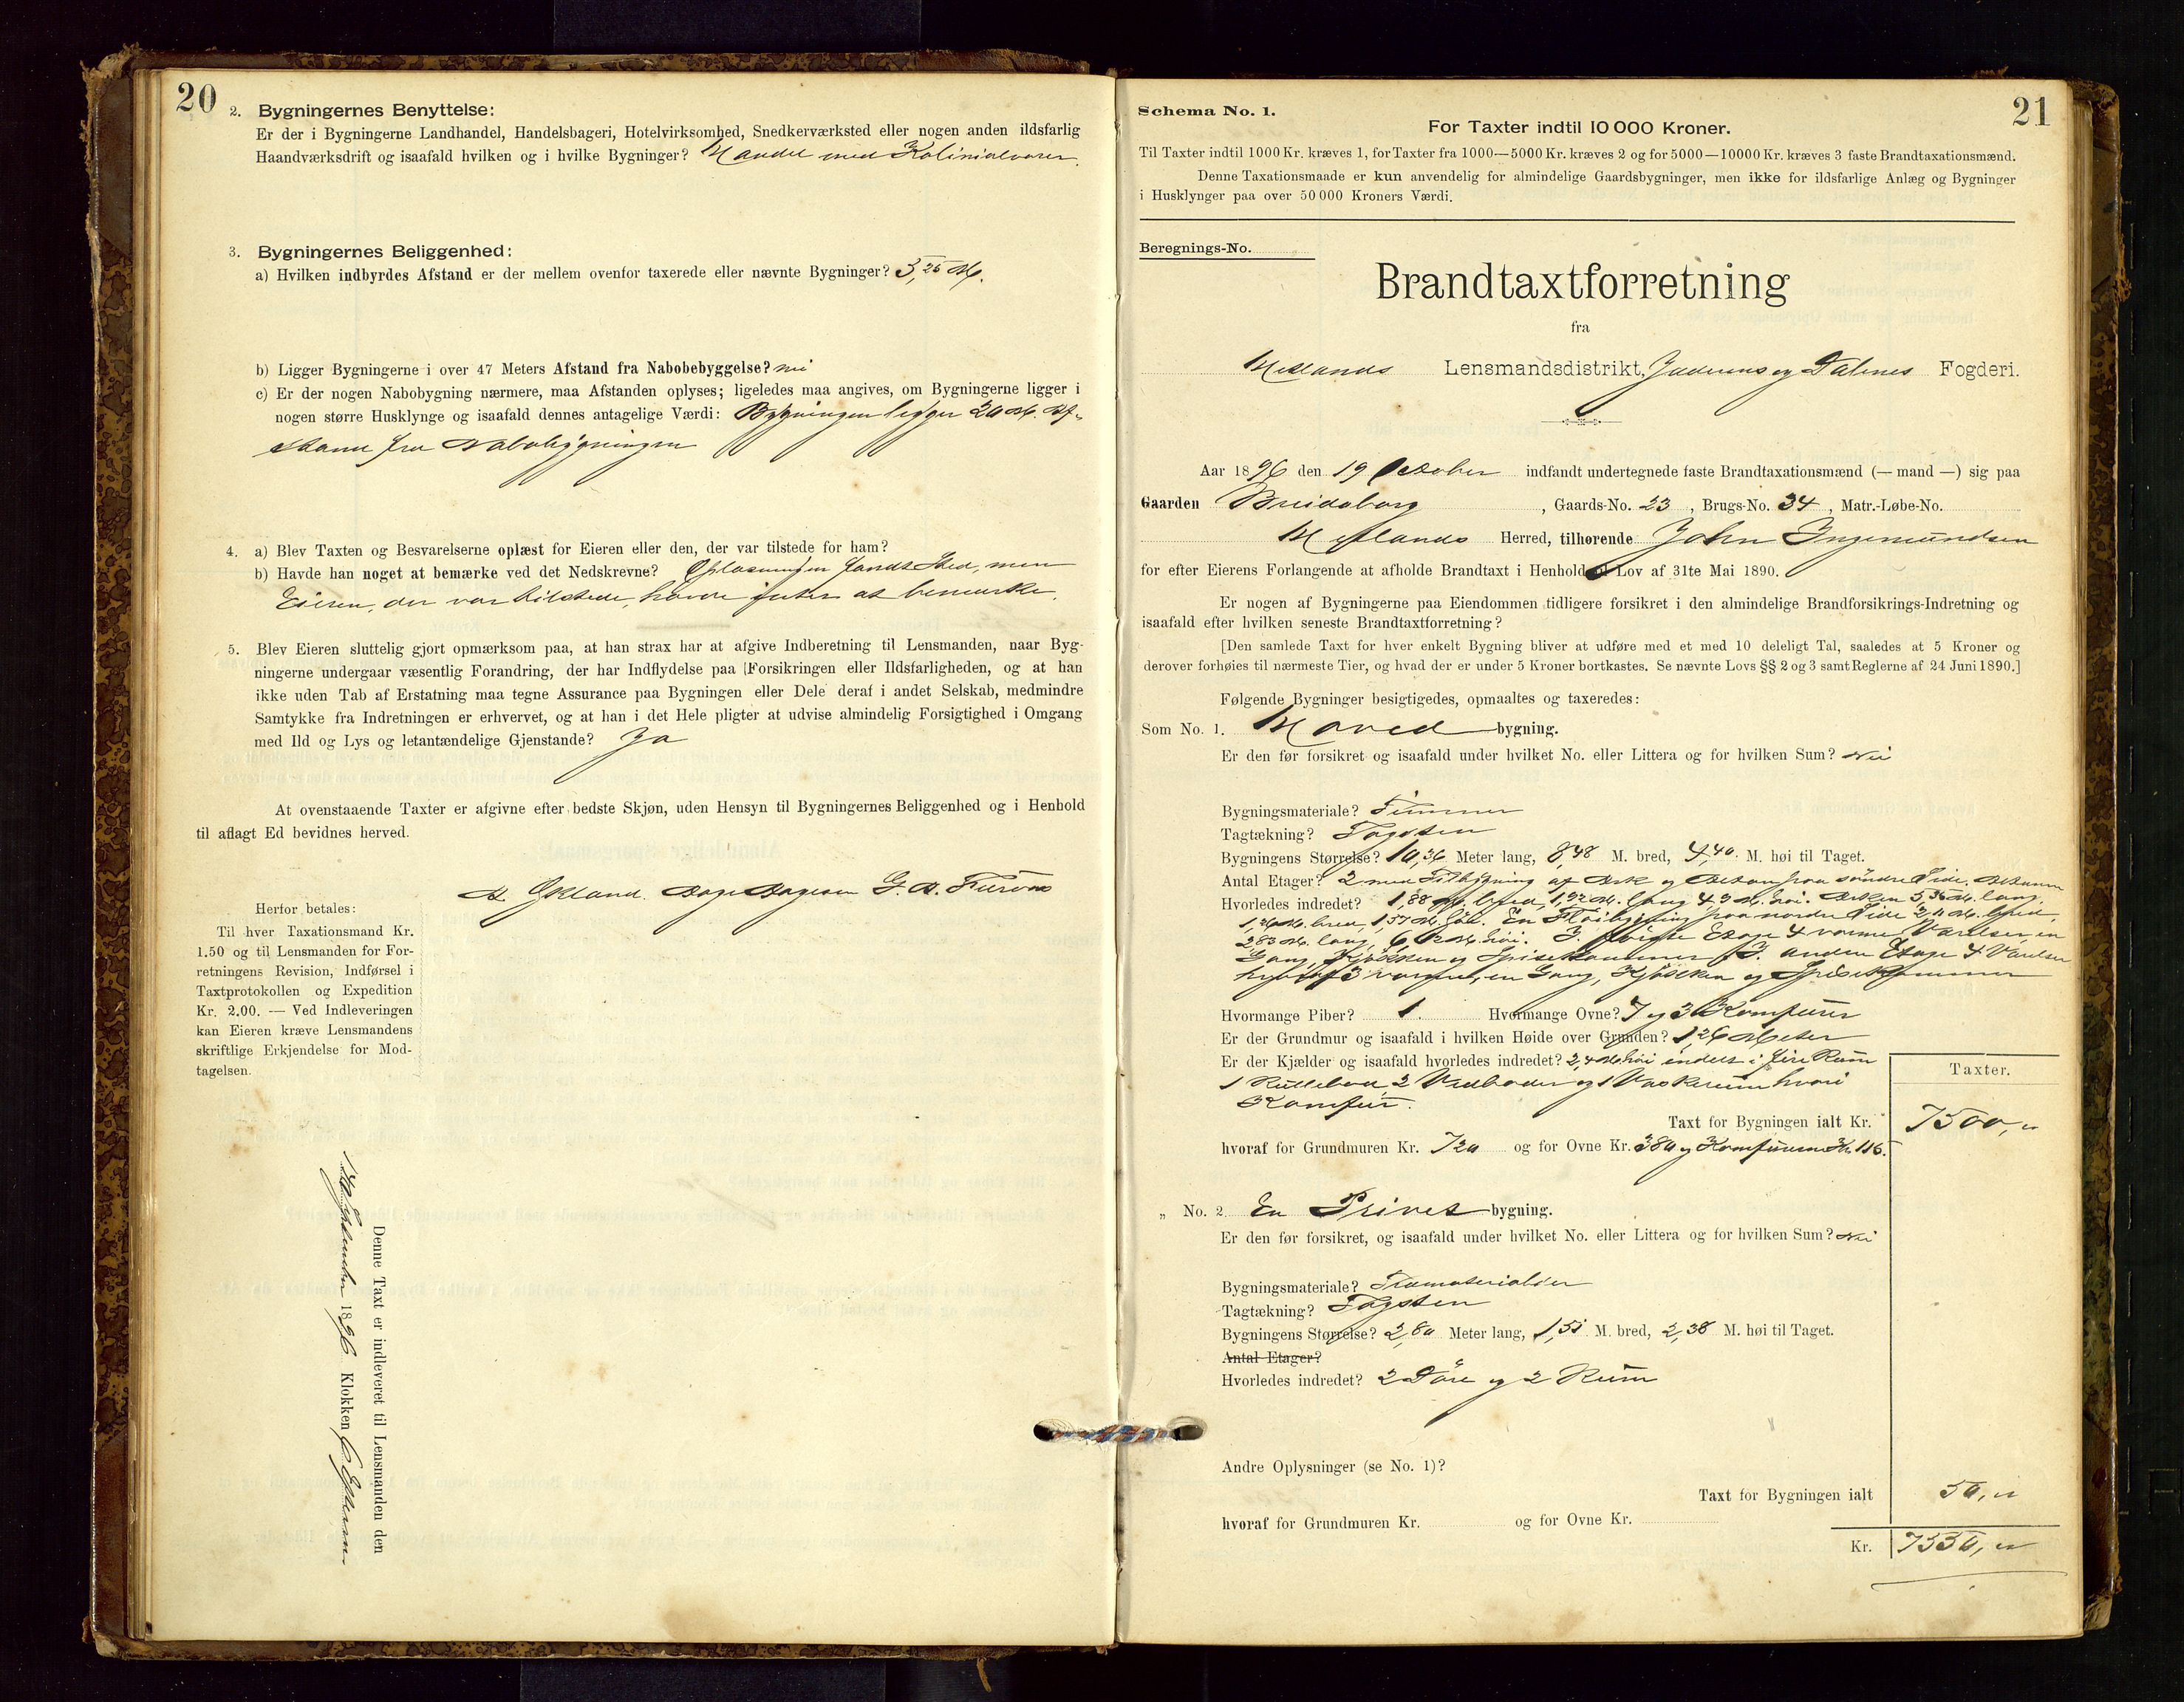 20
2. Bygningernes Benyttelse:
Er der i Bygningerne Landhandel, Handelsbageri, Hotelvirksomhed, Snedkerværksted eller nogen anden ildsfarlig
Haandværksdrift og isaafald hvilken og i hvilke Bygninger? Handel med Kolinialvarer.
3. Bygningernes Beliggenhed:
a) Hvilken indbyrdes Afstand er der mellem ovenfor taxerede eller nævnte Bygninger? 3,25 M.
b) Ligger Bygningerne i over 47 Meters Afstand fra Nabobebyggelse? nei
c) Er der nogen Nabobygning nærmere, maa Afstanden oplyses; ligeledes maa angives, om Bygningerne ligger i
nogen større Husklynge og isaafald dennes antagelige Værdi: Bygningen ligger 20 M. Af-
stand fra Nabobygningen
4. a) Blev Taxten og Besvarelserne oplæst for Eieren eller den, der var tilstede for ham?
b) Havde han noget at bemærke ved det Nedskrevne? Oplæsningen fandt Sted, men
Eieren, der var tilstede, havde intet at bemærke.
5. Blev Eieren sluttelig gjort opmærksom paa, at han strax har at afgive Indberetning til Lensmanden, naar Byg-
ningerne undergaar væsentlig Forandring, der har Indflydelse paa Forsikringen eller Ildsfarligheden, og at han
ikke uden Tab af Erstatning maa tegne Assurance paa Bygningen eller Dele deraf i andet Selskab, medmindre
Samtykke fra Indretningen er erhvervet, og at han i det Hele pligter at udvise almindelig Forsigtighed i Omgang
med Ild og Lys og letantændelige Gjenstande? Ja
At ovenstaaende Taxter er afgivne efter bedste Skjøn, uden Hensyn til Bygningernes Beliggenhed og i Henhold
til aflagt Ed bevidnes herved.
Økland. Aage Aagesen G. A.
Herfor betales:
Til hver Taxationsmand Kr.
1.50 og til Lensmanden for For-
retningens Revision, Indførsel i
Taxtprotokollen og Expedition
Kr. 2.00. — Ved Indleveringen
kan Eieren kræve Lensmandens
skriftlige Erkjendelse for Mod-
tagelsen.
Denne Taxt er indleveret til Lensmanden den
1896 Klokken 6 Efterm.
21
Schema No. 1.
For Taxter indtil 10 000 Kroner.
Til Taxter indtil 1000 Kr. kræves 1, for Taxter fra 1000—5000 Kr. kræves 2 og for 5000—10000 Kr. kræves 3 faste Brandtaxationsmænd.
Denne Taxationsmaade er kun anvendelig for almindelige Gaardsbygninger, men ikke for ildsfarlige Anlæg og Bygninger
i Husklynger paa over 50 000 Kroners Værdi.
Beregnings-No.
Brandtaxtforretning
fra
Hetlands Lensmandsdistrikt, Jæderens og Dalenes Fogderi.
Aar 1896 den 19 October indfandt undertegnede faste Brandtaxationsmænd (— mand —) sig paa
Gaarden Breidaborg, Gaards-No. 23, Brugs-No. 34, Matr.-Løbe-No.
Hetlands Herred, tilhørende John Ingemundsen
for efter Eierens Forlangende at afholde Brandtaxt i Henhold til Lov af 31te Mai 1890.
Er nogen af Bygningerne paa Eiendommen tidligere forsikret i den almindelige Brandforsikrings-Indretning og
isaafald efter hvilken seneste Brandtaxtforretning?
[Den samlede Taxt for hver enkelt Bygning bliver at udføre med et med 10 deleligt Tal, saaledes at 5 Kroner og
derover forhøies til nærmeste Tier, og hvad der er under 5 Kroner bortkastes. Se nævnte Lovs §§ 2 og 3 samt Reglerne af 24 Juni 1890.]
Følgende Bygninger besigtigedes, opmaaltes og taxeredes:
Som No. 1. Hoved bygning.
Er den før forsikret og isaafald under hvilket No. eller Littera og for hvilken Sum? Nei
Bygningsmateriale? Tømmer
Tagtækning? Tagsten
Bygningens Størrelse? 10,36 Meter lang, 8,48 M. bred, 4,40 M. høi til Taget.
Antal Etager? 2 med Tilbygning af Ark og Altan paa søndre Side. Altanen
Hvorledes indredet? 1,88 M. bred, 1,22 M. lang 4,3 M. høi. Arken 5,36 M. lang,
1,26 M. bred, 1,57 M. høi. En Fløibygning paa nordre Side 2,11 M. bred,
2,83 M. lang, M. høi. I første Etage 4 varme Værelser, en
Gang, Kjøkken og Spisekammer. I anden Etage 4 Værelser
hvoraf 3 varme, en Gang, Kjøkken og Spisekammer
Hvormange Piber? 1. Hvormange Ovne? 7 og 3 Komfurer
Er der Grundmur og isaafald i hvilken Høide over Grunden? 1,26 Meter
Er der Kjælder og isaafald hvorledes indredet? 2,4 M. høi indelt i fire Rum
1 Rullebod, 2 Vedboder og 1 Vaskerum hvori
Komfur.
Taxter.
Taxt for Bygningen ialt Kr. 7500,„
hvoraf for Grundmuren Kr. 720 og for Ovne Kr. 380 og Komfurerne Kr 116.
„ No. 2. En Privet bygning.
Er den før forsikret, og isaafald under hvilket No. eller Littera og for hvilken Sum? Nei
Bygningsmateriale? Træmaterialier
Tagtækning? Tagsten
Bygningens Størrelse? 2,80 Meter lang, 1,51 M. bred, 2,38 M. høi til Taget.
Antal Etager?
Hvorledes indredet? 2 Døre og 2 Rum
Andre Oplysninger (se No. 1)?
Taxt for Bygningen ialt 50,„
hvoraf for Grundmuren Kr. og for Ovne Kr.
Kr. 7550,„